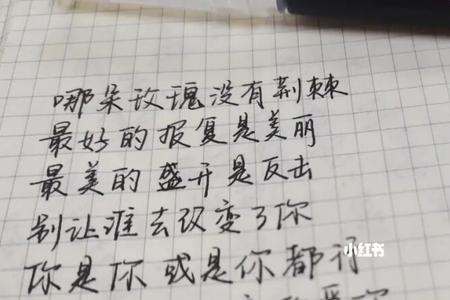 哪朵玫瑰没有荆棘
最好的报复是美丽
最美的盛开是反击
别让谁去改变了你
你是你 或是你都行
小红书